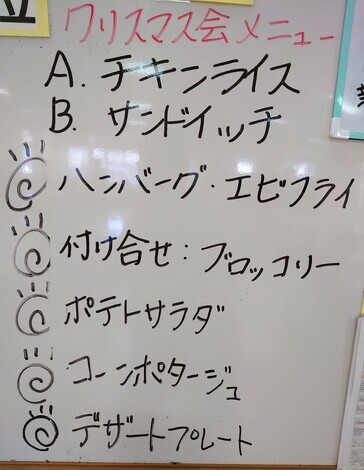 クリスマス会メニュー
A. チキンライス
B. サンドイッチ
ハンバーグ・エビフライ
付け合せ：ブロッコリー
ポテトサラダ
コーンポタージュ
デザートプレート